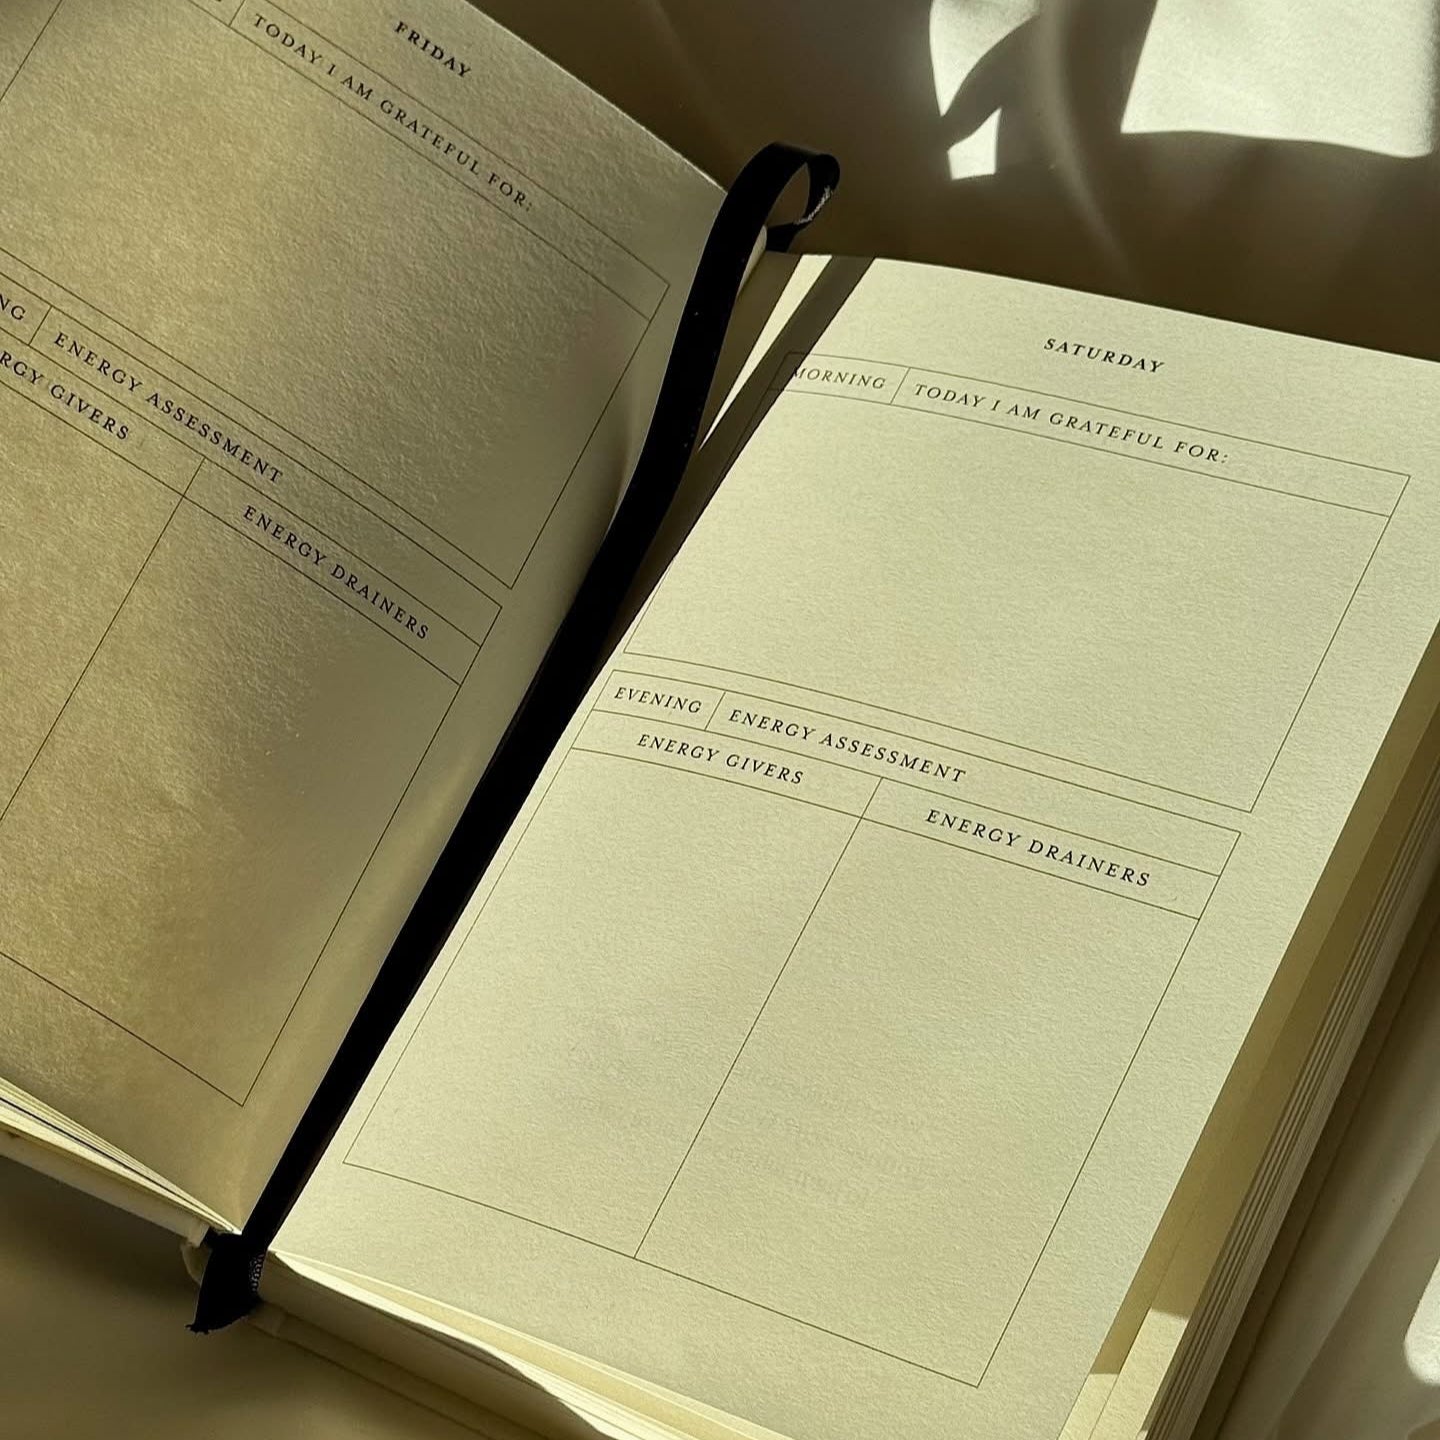 FRIDAY
TODAY I AM GRATEFUL FOR:
ENERGY ASSESSMENT
GIVERS
ENERGY DRAINERS
SATURDAY
MORNING
TODAY I AM GRATEFUL FOR:
EVENING
ENERGY ASSESSMENT
ENERGY GIVERS
ENERGY DRAINERS